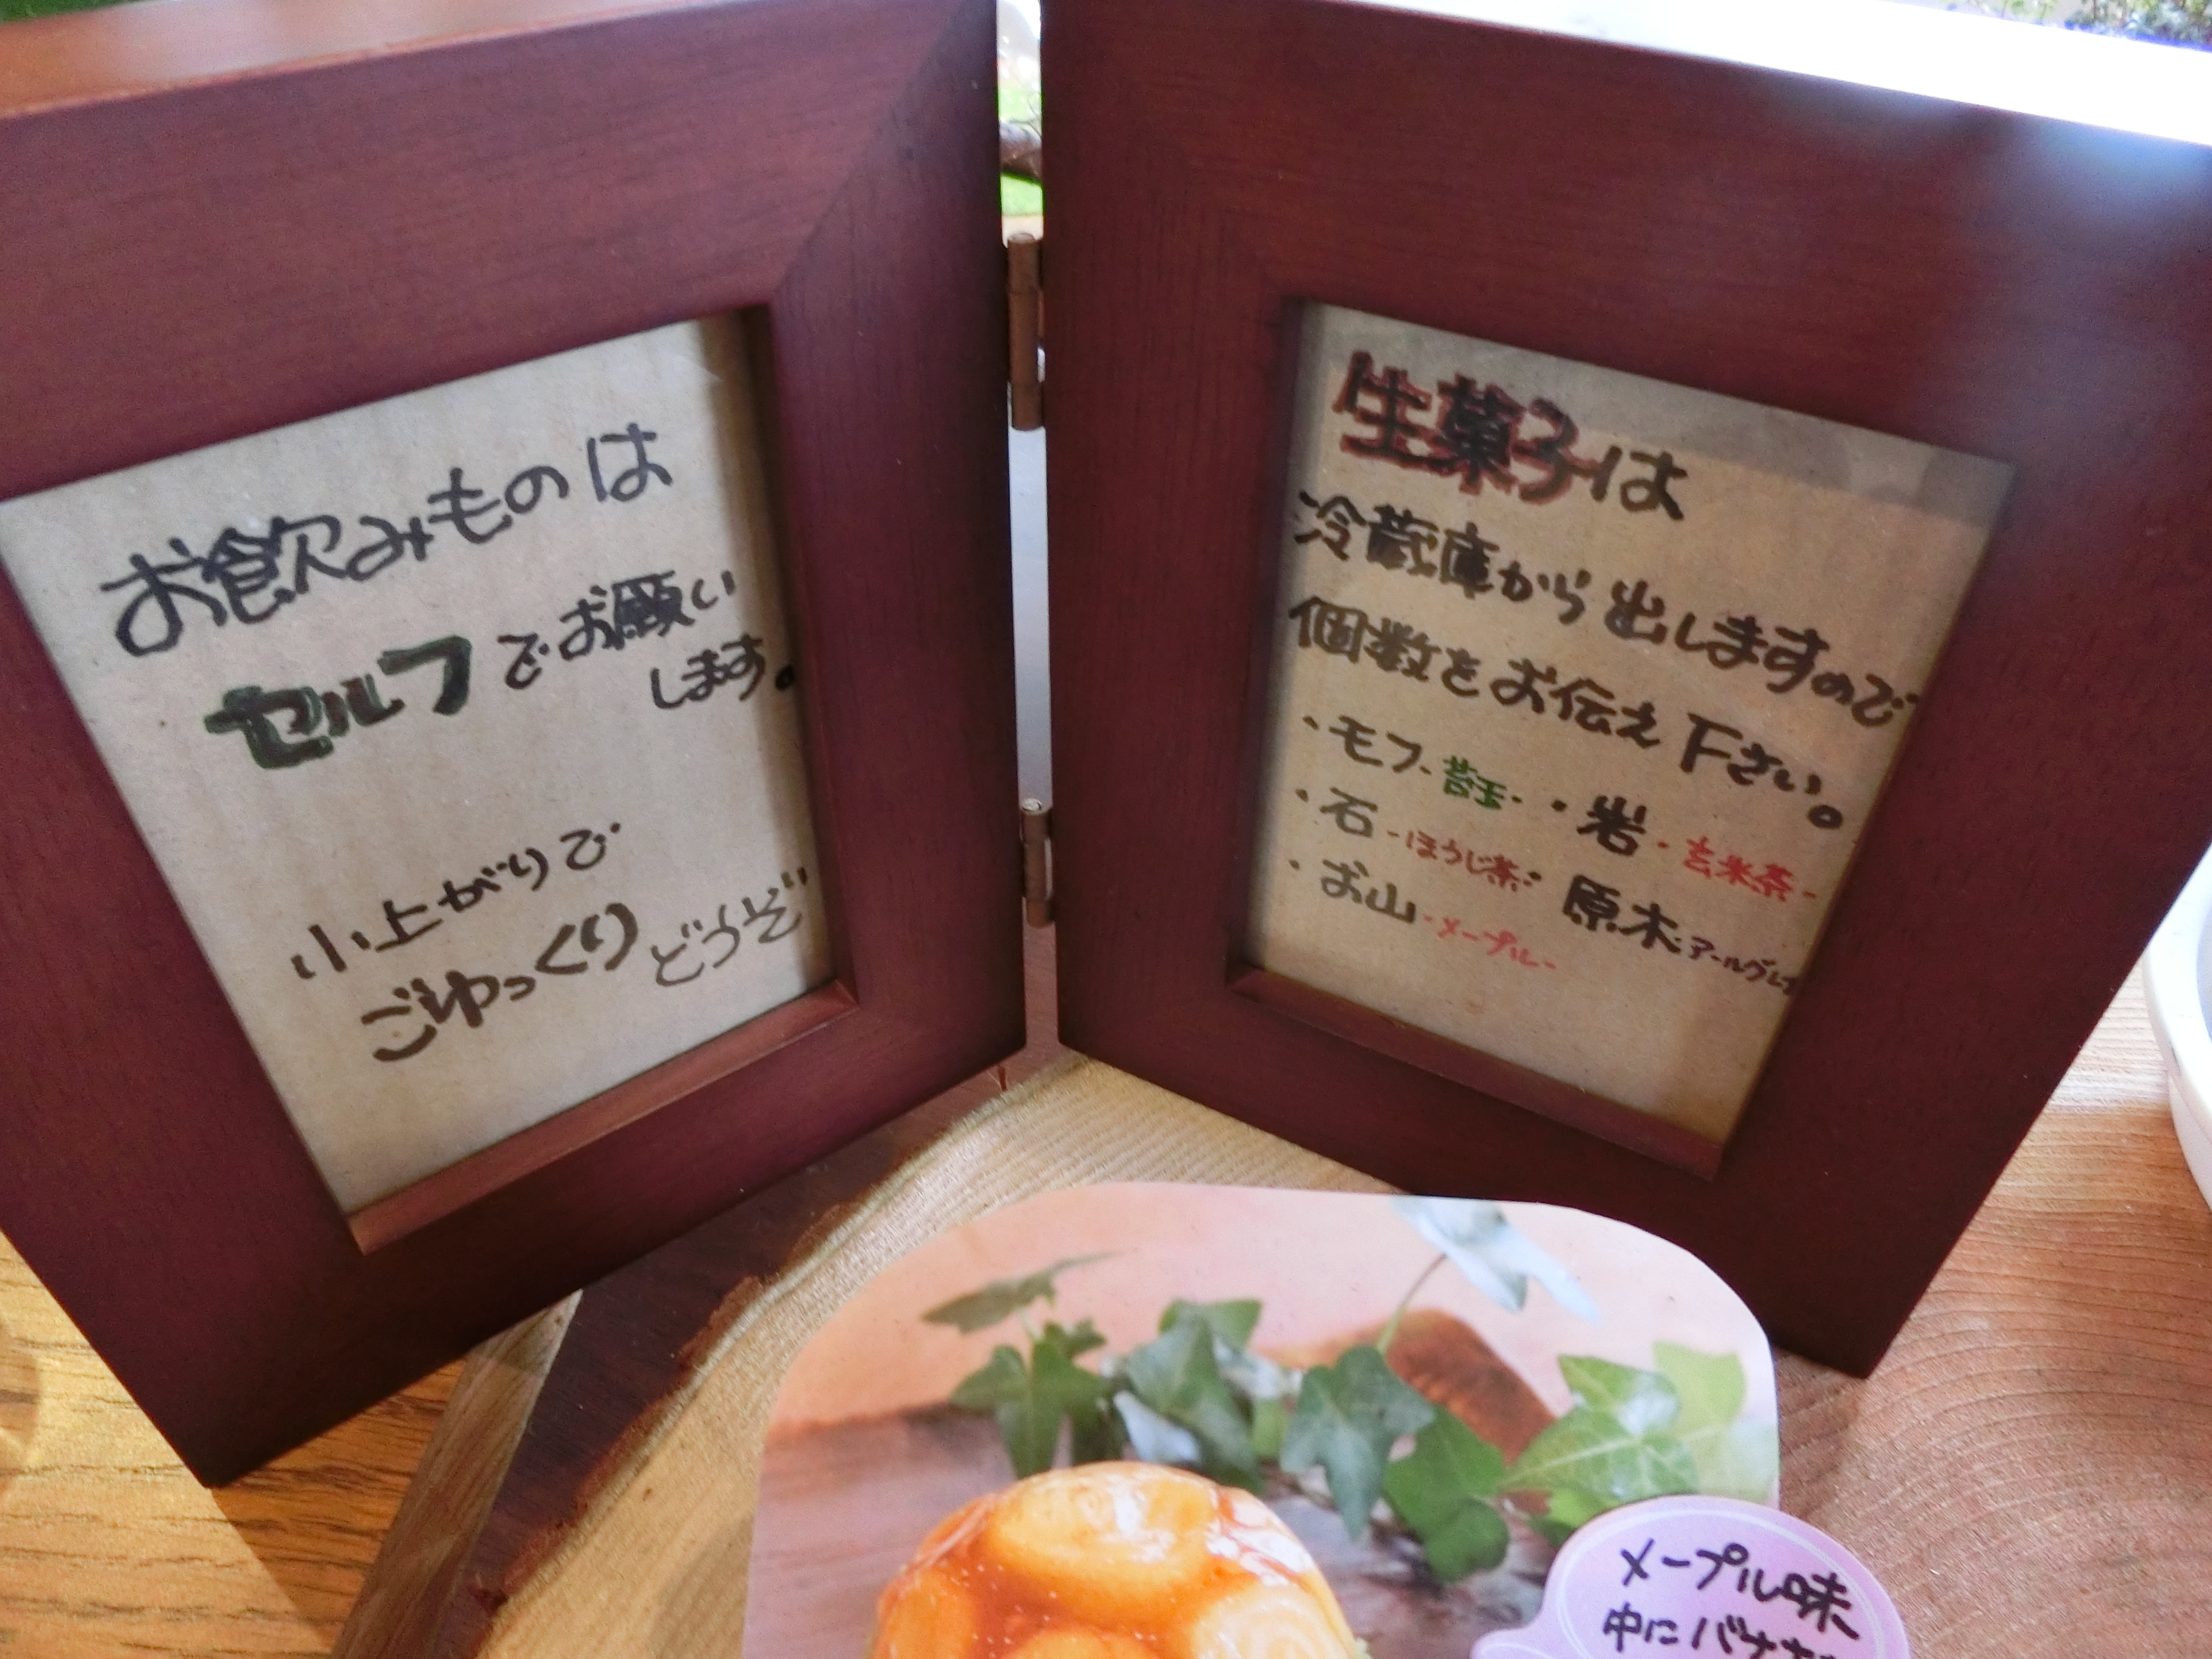 お飲みものは
セルフでお願い
します。
小上がりで
ごゆっくりどうぞ
生菓子は
冷蔵庫から出しますので
個数をお伝え下さい。
・モフ-苔玉- ・岩-玄米茶-
・石-ほうじ茶- ・原木-アールグレイ
・お山-メープル-
メープル味
中にバナナ